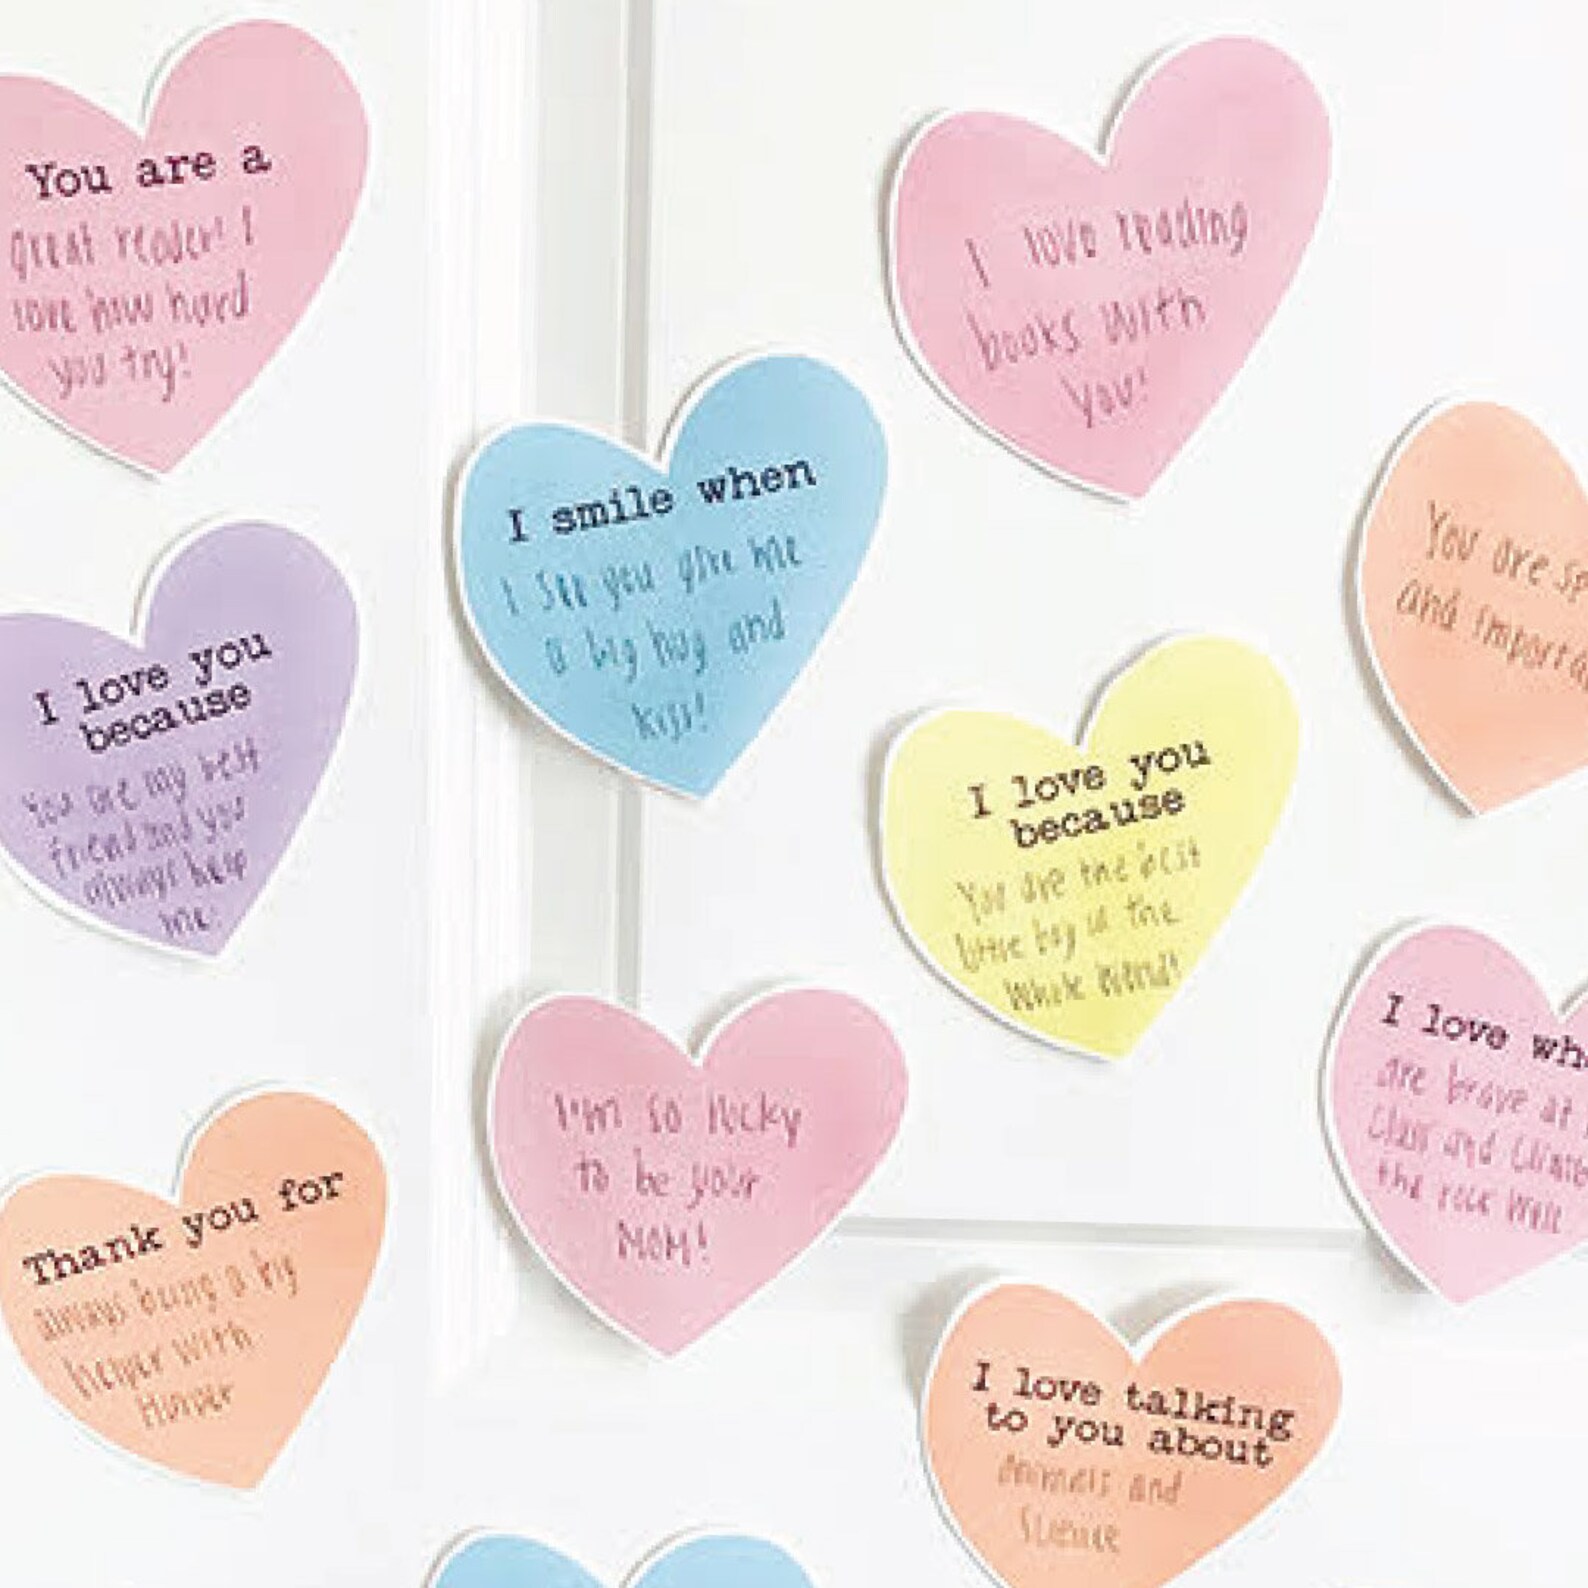 You are a
great reader! I
love how hard
you try!
I love reading
books with
you!
I smile when
I see you give me
a big hug and
kiss!
You are sp
and importa
I love you
because
You are my best
friend and you
always help
me!
I love you
because
You are the best
little boy in the
whole world!
I love whe
are brave at
Class and Climb
the rock wall
I'm so lucky
to be your
MOM!
Thank you for
always being a big
helper with
Harper
I love talking
to you about
animals and
science